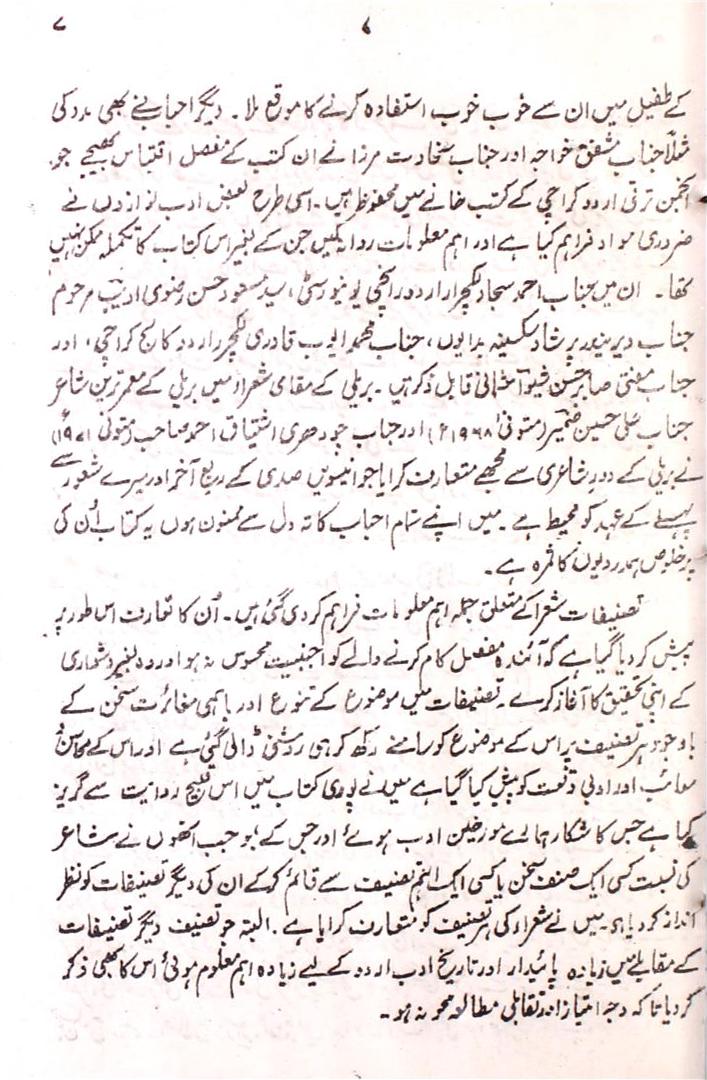 ۷
کے طفیل میں ان سے خوب خوب استفادہ کرنے کا موقع ملا۔ دیگر احباب نے بھی مدد کی
مثلاً جناب مشفق خواجہ اور جناب سخاوت مرزا نے ان کتب کے مفصل اقتباس بھیجے جو
انجمن ترقی اردو کراچی کے کتب خانے میں محفوظ ہیں۔ اسی طرح بعض ادب نوازوں نے
ضروری مواد فراہم کیا ہے اور اہم معلومات روانہ کیں جن کے بغیر اس کتاب کا تکملہ ممکن نہیں
تھا۔ ان میں جناب احمد سجاد لکچرار اردو رانچی یونیورسٹی، سید مسعود حسن رضوی ادیب مرحوم
جناب دیریندر پرشاد سکسینہ بدایوں، جناب محمد ایوب قادری لکچرر اردو کالج کراچی، اور
جناب مفتی صابر حسن شیوا عثمانی قابل ذکر ہیں۔ بریلی کے مقامی شعراء میں بریلی کے معمر ترین شاعر
جناب علی حسین ضمیر (متوفی ۱۹۶۸ء) اور جناب چودھری اشتیاق احمد صاحب (متوفی ۱۹۷۱ء)
نے بریلی کے دورِ شاعری سے مجھے متعارف کرایا جو انیسویں صدی کے ربع آخر اور میرے شعور سے
پہلے کے عہد کو محیط ہے۔ میں اپنے تمام احباب کا تہ دل سے ممنون ہوں یہ کتاب اُن کی
پرخلوص ہمدردیوں کا ثمرہ ہے۔
تصنیفات شعرا کے متعلق جملہ اہم معلومات فراہم کر دی گئی ہیں۔ اُن کا تعارف اس طور پر
پیش کر دیا گیا ہے کہ آئندہ مفصل کام کرنے والے کو اجنبیت محسوس نہ ہو اور وہ بغیر دشواری
کے اپنی تحقیق کا آغاز کرے۔ تصنیفات میں موضوع کے تنوع اور باہمی مغائرت سخن کے
باوجود ہر تصنیف پر اس کے موضوع کو سامنے رکھ کر ہی روشنی ڈالی گئی ہے اور اس کے محاسن و
معائب اور ادبی وقعت کو پیش کیا گیا ہے میں نے پوری کتاب میں اس قبیح روایت سے گریز
کیا ہے جس کا شکار ہمارے مورخین ادب ہوئے اور جس کے بموجب انھوں نے شاعر
کی نسبت کسی ایک صنف سخن یا کسی ایک اہم تصنیف سے قائم کرکے ان کی دیگر تصنیفات کو نظر
انداز کر دیا ہے۔ میں نے شعراء کی ہر تصنیف کو متعارف کرایا ہے۔ البتہ جو تصنیف دیگر تصنیفات
کے مقابلے میں زیادہ پائیدار اور تاریخ ادب اردو کے لیے زیادہ اہم معلوم ہوئی اس کا بھی ذکر
کر دیا تاکہ وجہ امتیاز اور تقابلی مطالعہ محو نہ ہو۔